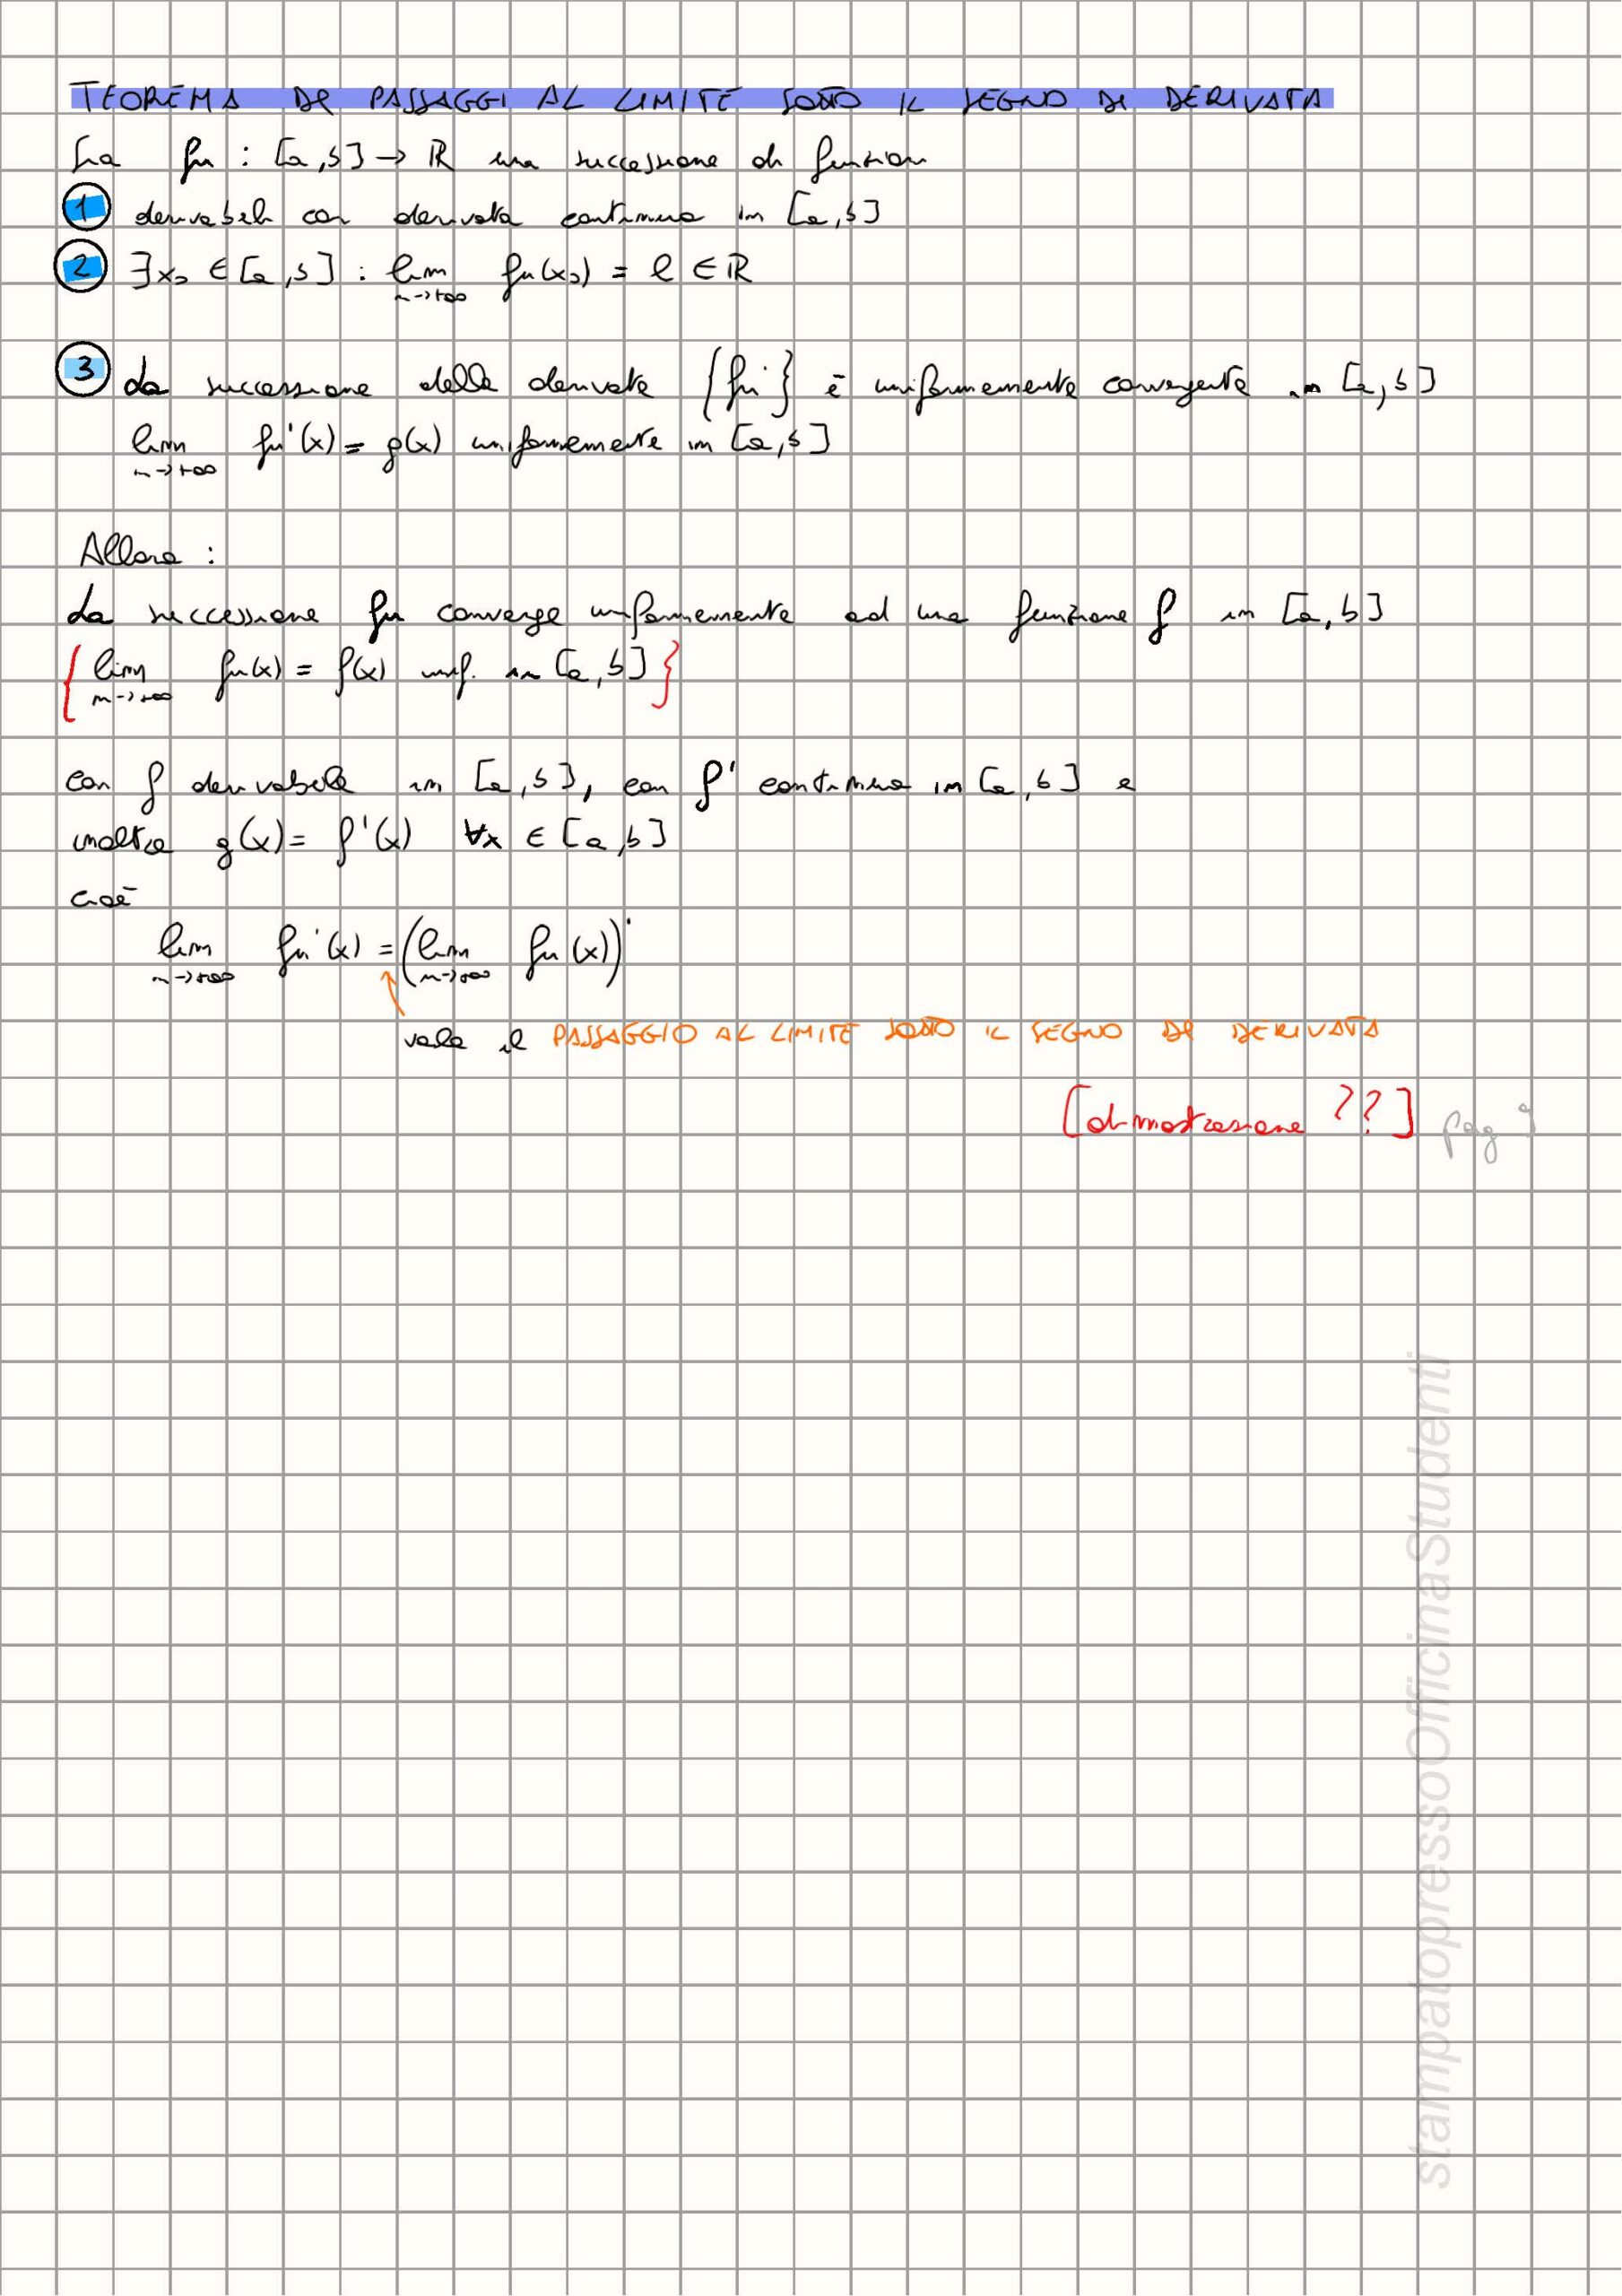 TEOREMA DI PASSAGGI AL LIMITE SOTTO IL SEGNO DI DERIVATA
Sia fn : [a,b] → ℝ una successione di funzioni
1 derivabili con derivata continua in [a,b]
2 ∃x₀ ∈ [a,b] : lim n→+∞ fn(x₀) = l ∈ ℝ
3 La successione delle derivate {fn'} è uniformemente convergente in [a,b]
lim n→+∞ fn'(x) = g(x) uniformemente in [a,b]
Allora :
La successione fn converge uniformemente ad una funzione f in [a,b]
{ lim n→+∞ fn(x) = f(x) unif. in [a,b] }
con f derivabile in [a,b], con f' continua in [a,b] e
inoltre g(x) = f'(x) ∀x ∈ [a,b]
cioè
lim n→+∞ fn'(x) = (lim n→+∞ fn(x))'
vale il PASSAGGIO AL LIMITE SOTTO IL SEGNO DI DERIVATA
[dimostrazione ??] pag 9
stampatopressoOfficinaStudenti